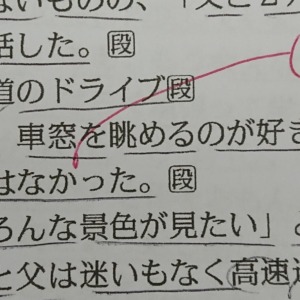 ないものの、「父と
話した。段
道のドライブ段
車窓を眺めるのが好き
はなかった。段
ろんな景色が見たい」
と父は迷いもなく高速道